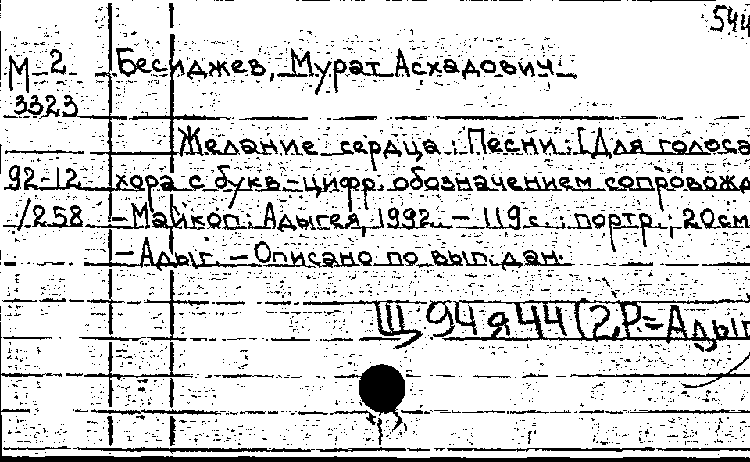 544
М-2 Бесиджев, Мурат Асхадович
3323
Желание сердца: Песни: [Для голоса
92-12 хора с букв.-цифр. обозначением сопровожд
/258 - Майкоп: Адыгея, 1992. - 119 с.: портр.; 20см
- Адыг. - Описано по вып. дан.
Щ 94 я 44 (2.Р=Адыг